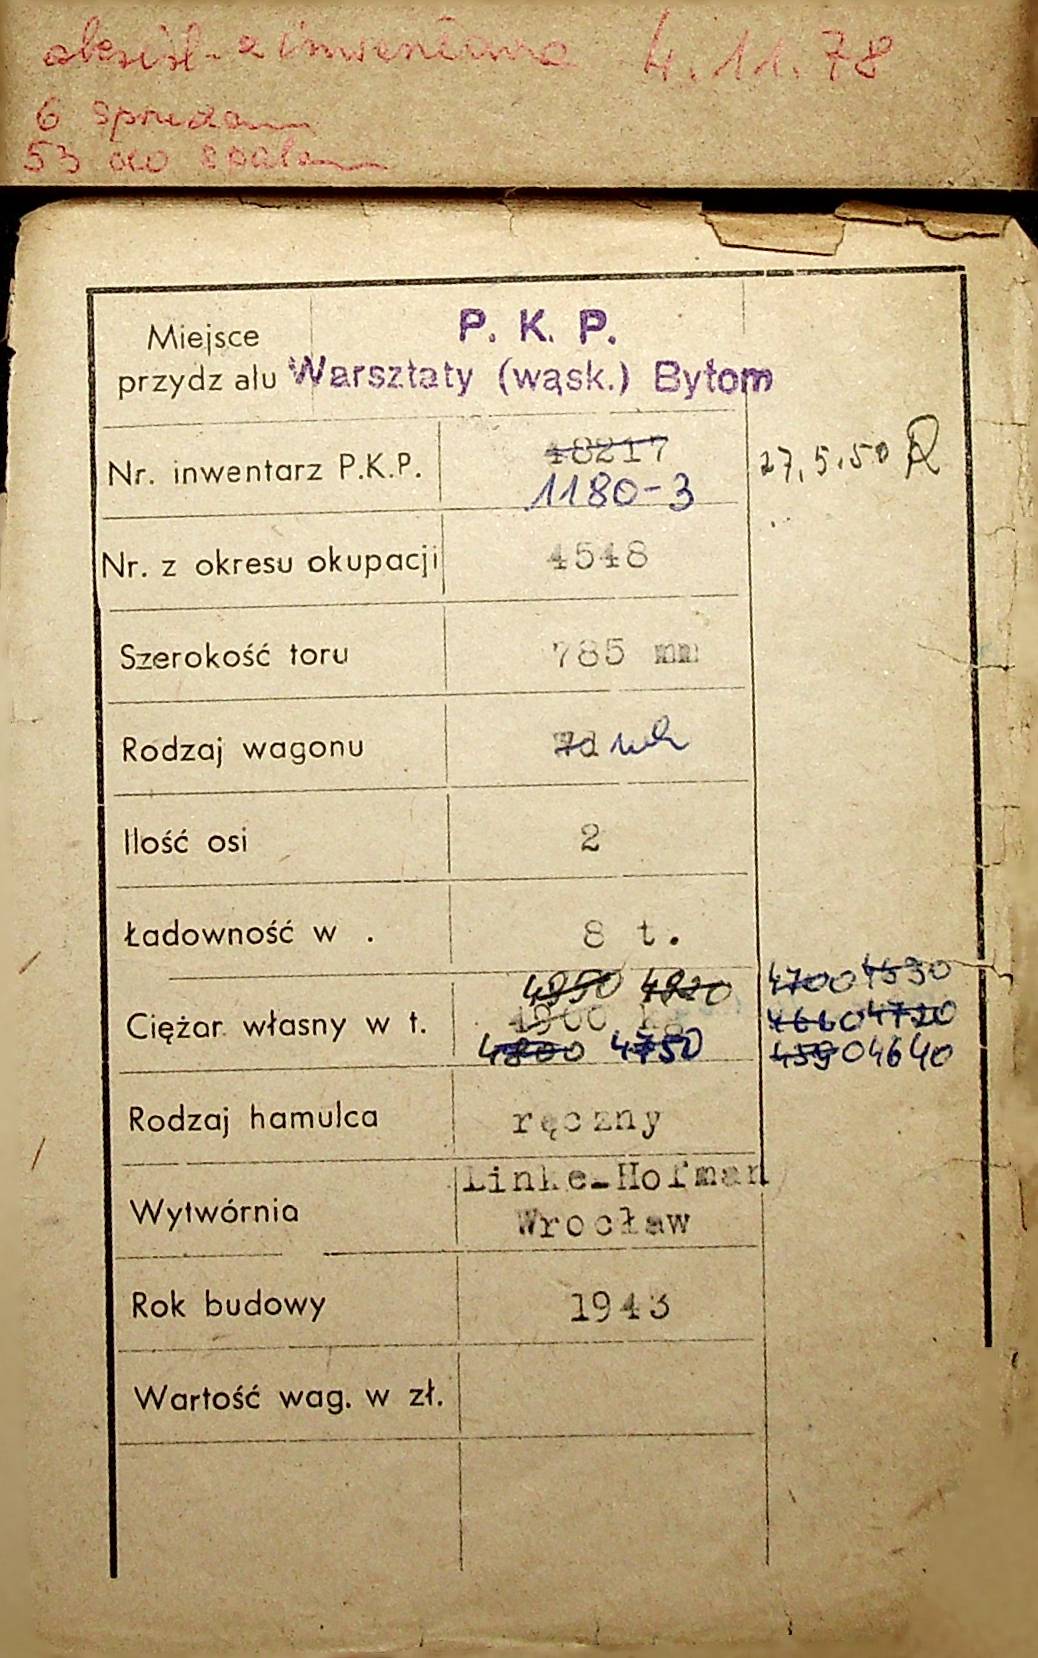 4.11.78
6
53 do
P. K. P.
Miejsce
przydz ału Warsztaty (wąsk.) Bytom
48217
Nr. inwentarz P.K.P. 27.5.50
1180-3
Nr. z okresu okupacji 4548
Szerokość toru 785 mm
Rodzaj wagonu
Ilość osi 2
Ładowność w . 8 t.
4950 4820 4700 4590
Ciężar własny w t. 4900 kg 4660 4720
4800 4750 4590 4640
Rodzaj hamulca ręczny
Linke-Hofman
Wytwórnia
Wrocław
Rok budowy 1943
Wartość wag. w zł.